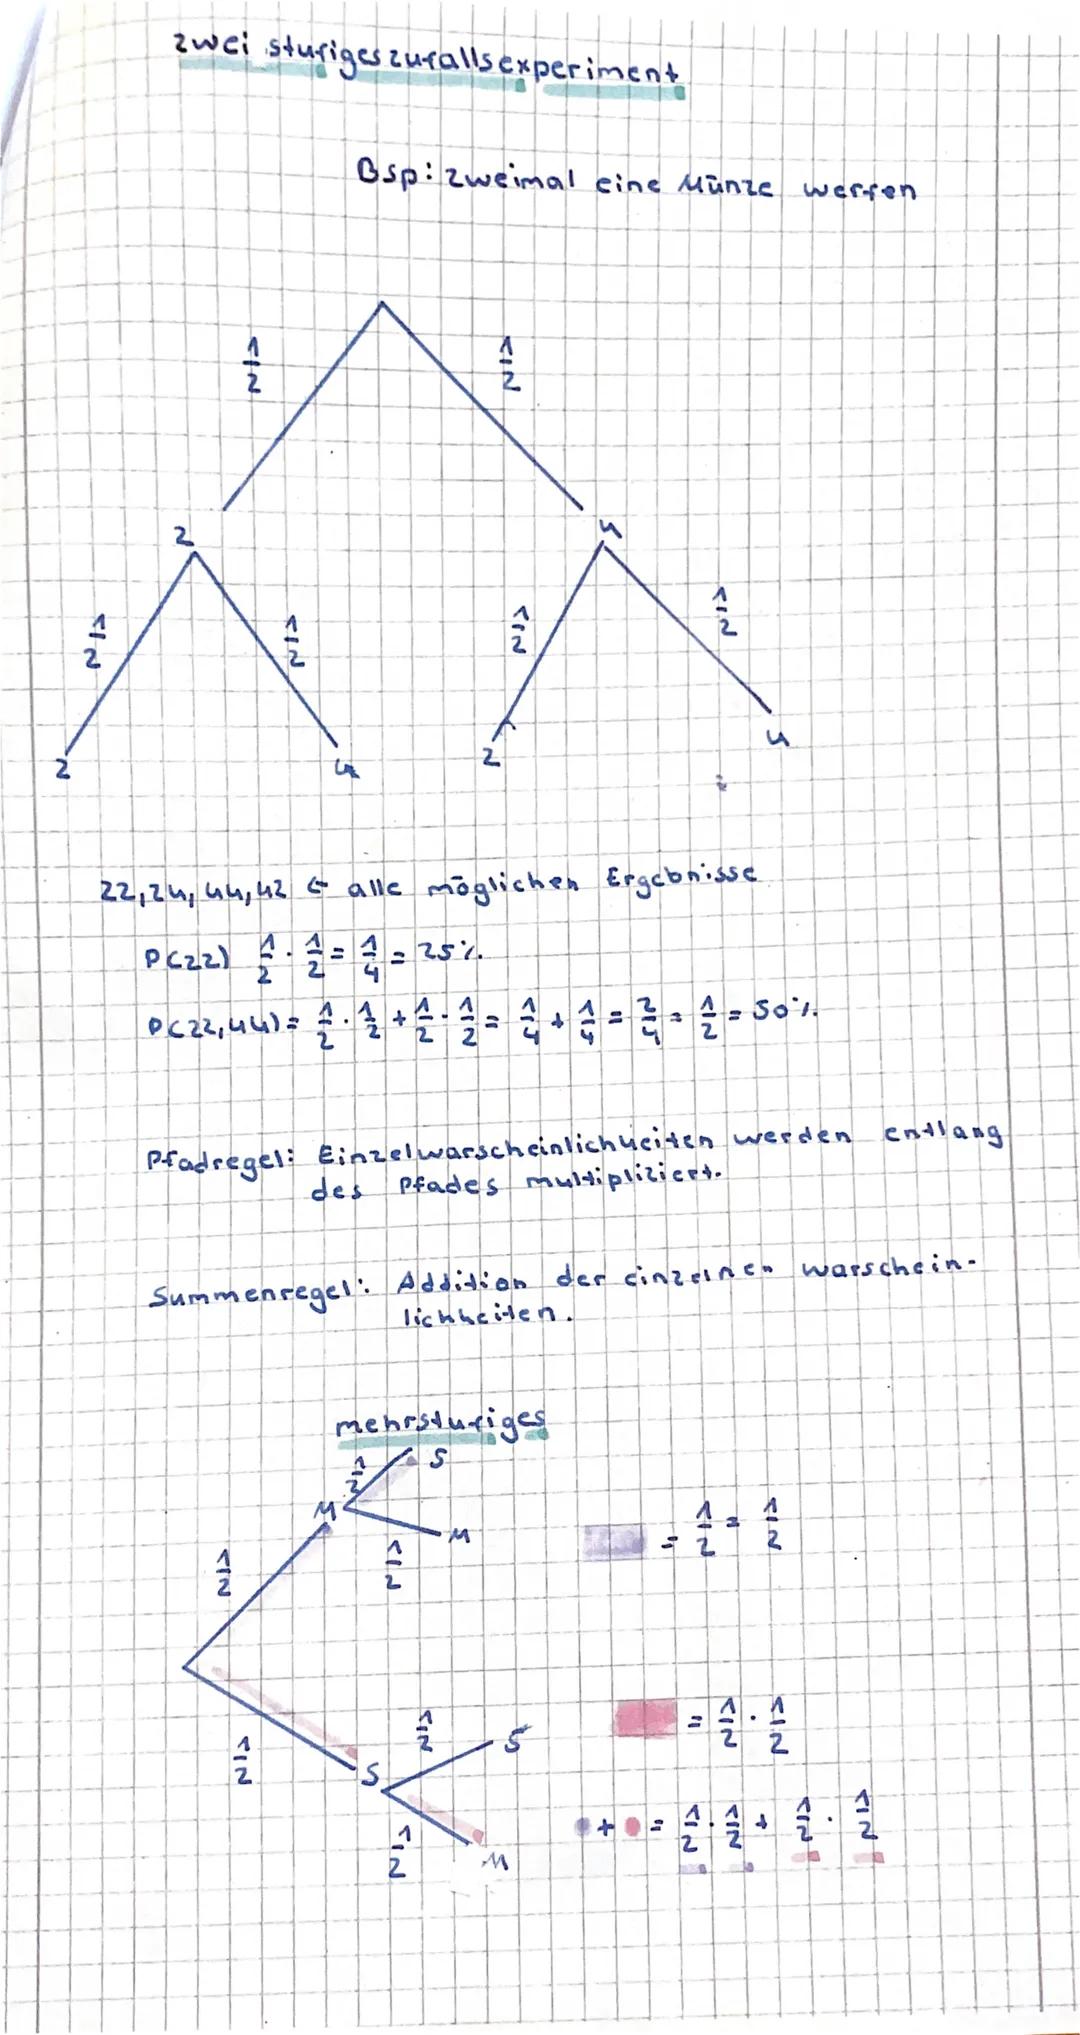 zwei stufiges zufallsexperiment
Bsp: zweimal eine Münze werfen
1/2 1/2
Z u
1/2 1/2 1/2 1/2
Z u Z u
ZZ, Zu, uu, uZ ← alle möglichen Ergebnisse
P(ZZ) 1/2 · 1/2 = 1/4 = 25%
P(ZZ, uu) = 1/2 · 1/2 + 1/2 · 1/2 = 1/4 + 1/4 = 2/4 = 1/2 = 50%
Pfadregel: Einzelwarscheinlichkeiten werden entlang
des Pfades multipliziert.
Summenregel: Addition der einzelnen warschein-
lichkeiten.
mehrstufiges
1/2 S
M
M
1/2 1/2
= 1/2 = 1/2
1/2 1/2 S
S
= 1/2 · 1/2
1/2 M
+ = 1/2 · 1/2 + 1/2 · 1/2